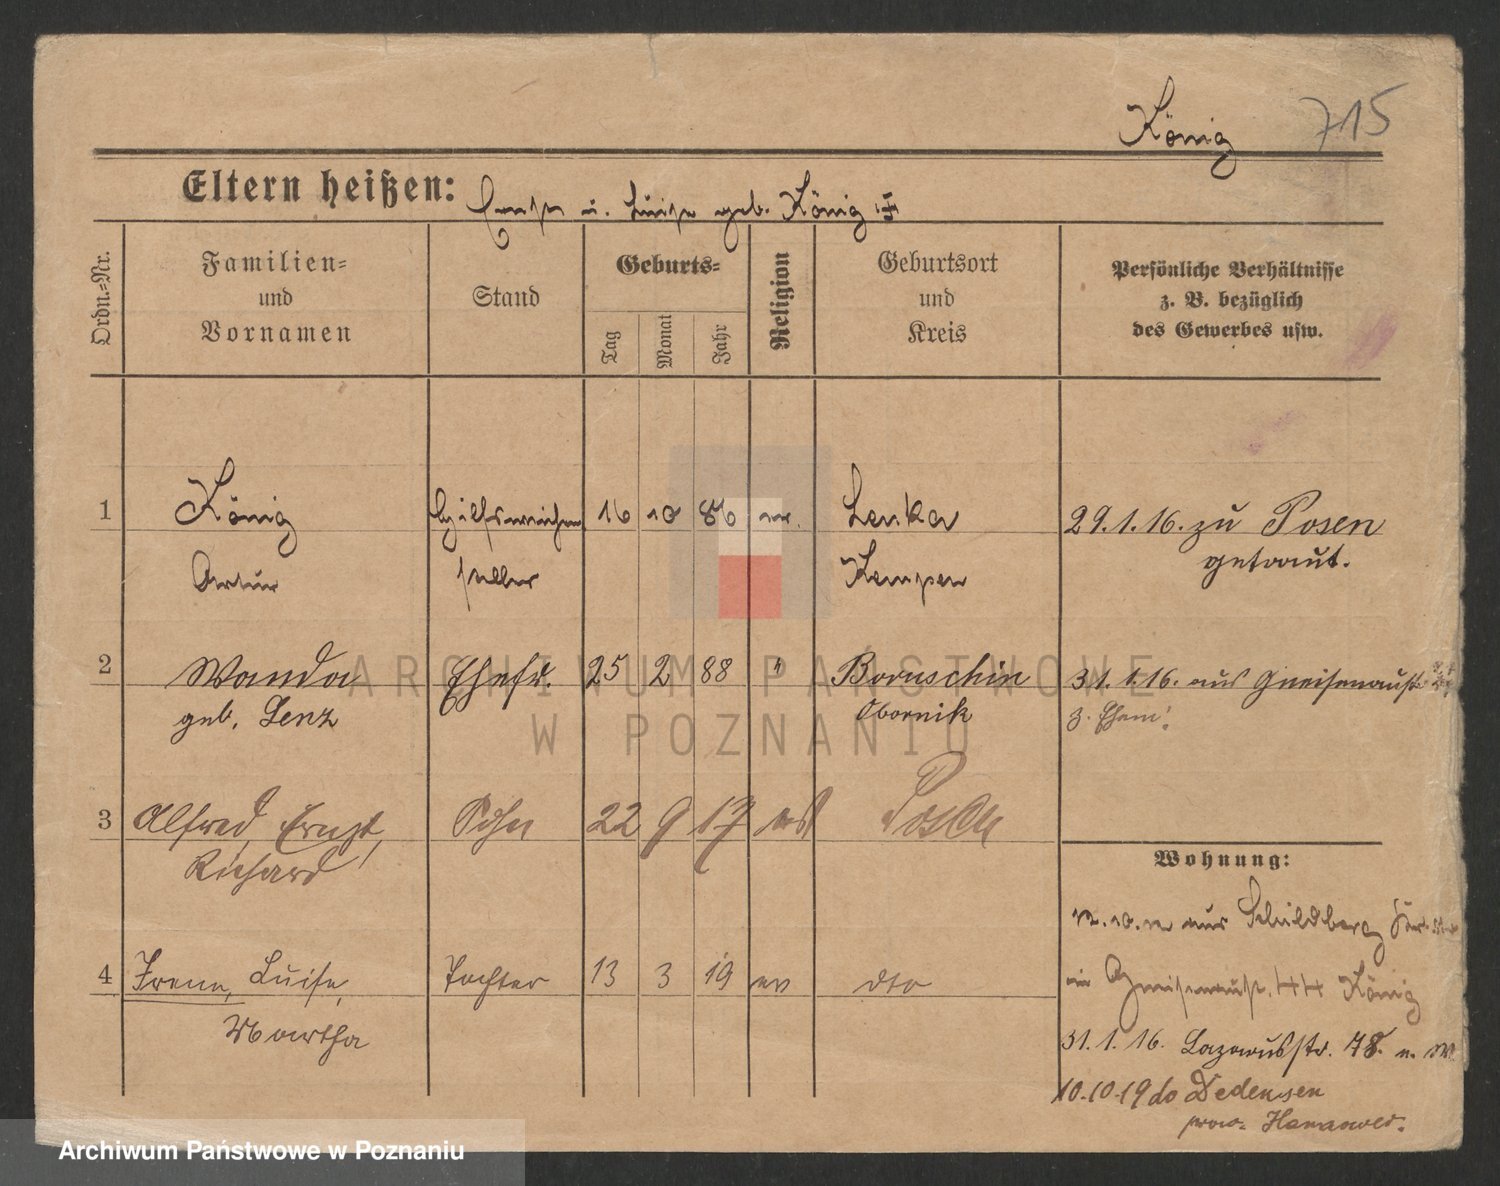 König 715
Eltern heißen: Ernst u. Luise geb. König
Ordn.-Nr.
Familien-
und
Vornamen
Stand
Geburts-
Tag
Monat
Jahr
Religion
Geburtsort
und
Kreis
Persönliche Verhältnisse
z. B. bezüglich
des Gewerbes usw.
1 König Hilfsweichen 16 10 86 ev. Lenka 29.1.16. zu Posen
Artur steller Kempen getraut.
2 Wanda Ehefr. 25 2 88 " Boruschin 31.1.16. aus Gneisenaustr.
geb. Lenz Obornik z. Ehem.
3 Alfred, Ernst, Sohn 22 9 17 ev Posen
Richard
Wohnung:
aus Schildberg
4 Irene, Luise, Tochter 13 3 19 ev dto
in Gneisenaustr. 44 König
Martha
31.1.16. Lazarusstr. 78. n.
10.10.19 do Dedensen
prov. Hannover.
ARCHIWUM PAŃSTWOWE
W POZNANIU
Archiwum Państwowe w Poznaniu